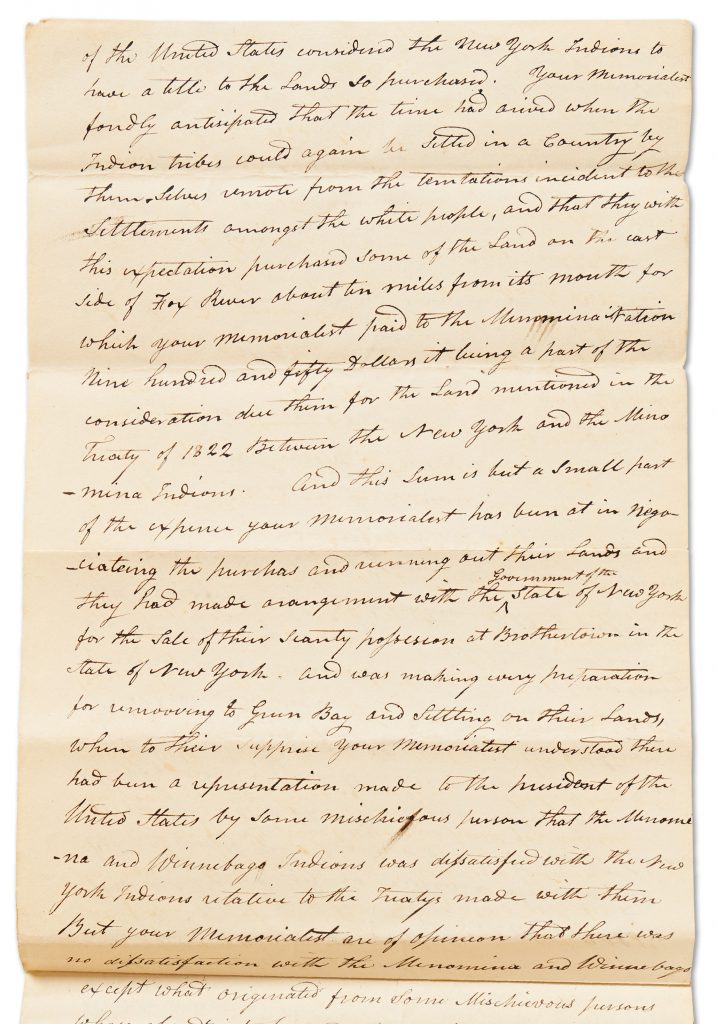 of the United States considered the New York Indians to
have a title to the Lands so purchased. Your Memorialest
fondly antisipated that the time had arived when the
Indion tribes could again be Setled in a Country by
them Selves remote from the temtations incident to the
Settlements amongst the white people, and that they with
this expectation purchased some of the Land on the east
side of Fox River about ten miles from its mouth for
which your Memorialest paid to the Menomina Nation
Nine hundred and fifty Dollars it being a part of the
consideration due them for the Land mentioned in the
Treaty of 1822 Between the New York and the Mino
-mina Indions. And this Sum is but a Small part
of the expence your Memorialest has been at in Nego-
-ciateing the purchas and running out their Lands and
Government of the
they had made arangement with the ^ State of New York
for the Sale of their Scanty possession at Brothertown in the
State of New York - and was making every preparation
for remooving to Green Bay and Settling on their Lands,
when to their Supprise your Memorialest understood there
had been a representation made to the president of the
United States by Some Mischiefous person that the Menome
-na and Winnebago Indions was dissatisfied with the New
York Indions relative to the Treatys made with them
But your Memorialest are of opinion that there was
no dissatisfaction with the Menomina and Winnebago
except what originated from Some Mischievous persons